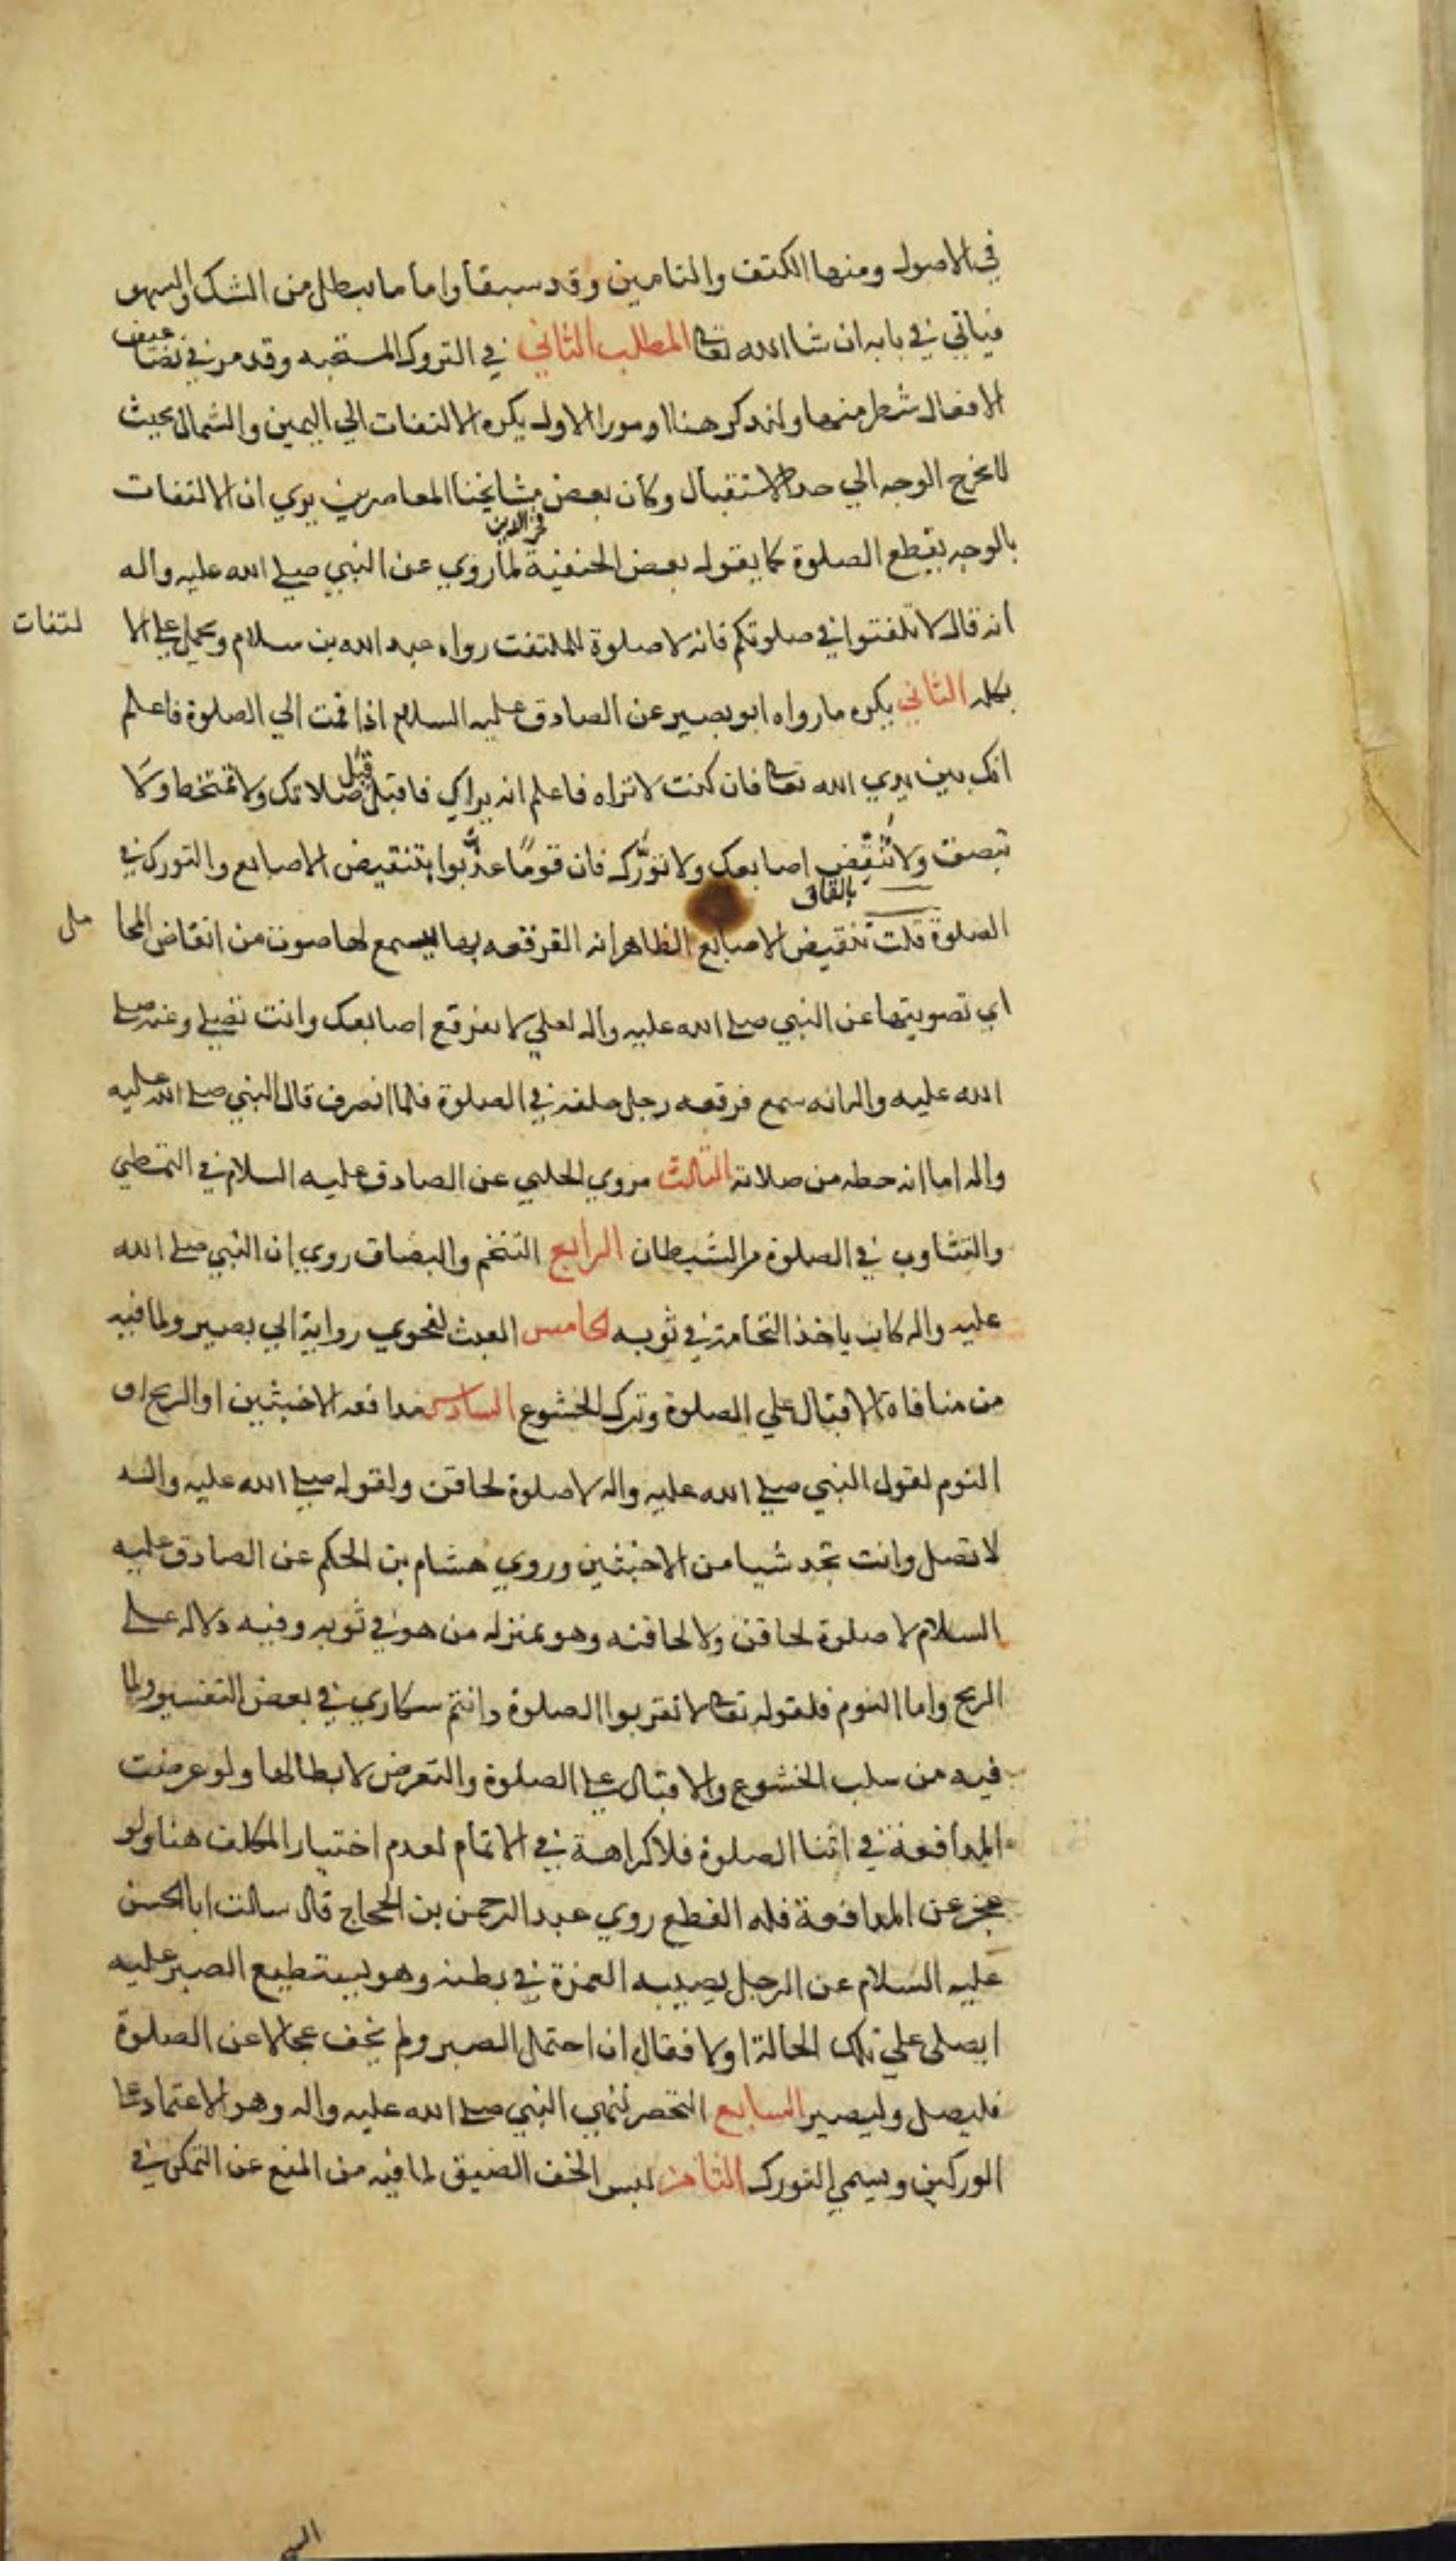 في الاصول ومنها الكتف والتامين وقد سبقا واما ما يبطل من الشك والسهو
فياتي في بابه ان شا الله تعالى المطلب الثاني في التروك المستحبه وقد مر في تضاعيف
الافعال شطر منها ولنذكر هنا امورا الاول يكره الالتفات الي اليمين والشمال بحيث
لا يخرج الوجه الي حد الاستقبال وكان بعض مشايخنا المعاصرين يري ان الالتفات
فخر الدين
بالوجه يقطع الصلوة كما يقوله بعض الحنفية لما روي عن النبي صلى الله عليه واله
انه قال لا تلفتوا في صلوتكم فانه لا صلوة لللملتفت رواه عبد الله بن سلام ويحمل على الا لتفات
بكله الثاني يكره ما رواه ابو بصير عن الصادق عليه السلام اذا قمت الي الصلوة فاعلم
انك بين يدي الله تعالى فان كنت لا تراه فاعلم انه يراك فاقبل قبل صلاتك ولا تمتخط ولا
تبصق ولا تنقض اصابعك ولا تورك فان قوما عذبوا بتنقيض الاصابع والتورك في
بالقاف
الصلوة قلت تنقيض الاصابع الظاهر انه الفرقعه بها ليسمع لها صوت من انقاض المحا مل
اي تصويتها عن النبي صلى الله عليه واله لعلي لا تفرقع اصابعك وانت تصلي وعنه صلى
الله عليه واله انه سمع فرقعه رجل خلفه في الصلوة فلما انصرف قال النبي صلى الله عليه
واله اما انه حظه من صلاته الثالث مروي الحلبي عن الصادق عليه السلام في التمطي
والتثاوب في الصلوة من الشيطان الرابع التنخم والبصاق روي ان النبي صلى الله
عليه واله كان ياخذ النخامة في ثوبه الخامس العبث لفحوي رواية ابي بصير ولما فيه
من منافاة الاقبال علي الصلوة وترك الخشوع السادس مدافعه الاخبثين او الريح او
النوم لقول النبي صلى الله عليه واله لا صلوة لحاقن ولقوله صلى الله عليه واله
لا تصل وانت تجد شيا من الاخبثين وروي هشام بن الحكم عن الصادق عليه
السلام لا صلوة لحاقن ولا لحاقنه وهو بمنزله من هو في ثوبه وفيه دلاله على
الريح واما النوم فلقوله تعالى لا تقربوا الصلوة وانتم سكاري في بعض التفسير ولما
فيه من سلب الخشوع والاقبال على الصلوة والتعرض لابطالها ولو عرضت
المدافعة في اثنا الصلوة فلا كراهة في الاتمام لعدم اختيار المكلف هنا ولو
عجز عن المدافعة فله القطع روي عبد الرحمن بن الحجاج قال سالت ابا الحسن
عليه السلام عن الرجل يصيبه الغمزة في بطنه وهو يستطيع الصبر عليه
ايصلى علي تلك الحالة او لا فقال ان احتمل الصبر ولم يخف عجالا عن الصلوة
فليصل وليصبر السابع التخصر لنهي النبي صلى الله عليه واله وهو الاعتماد على
الوركين ويسمي التورك الثامن لبس الخف الضيق لما فيه من المنع عن التمكن في